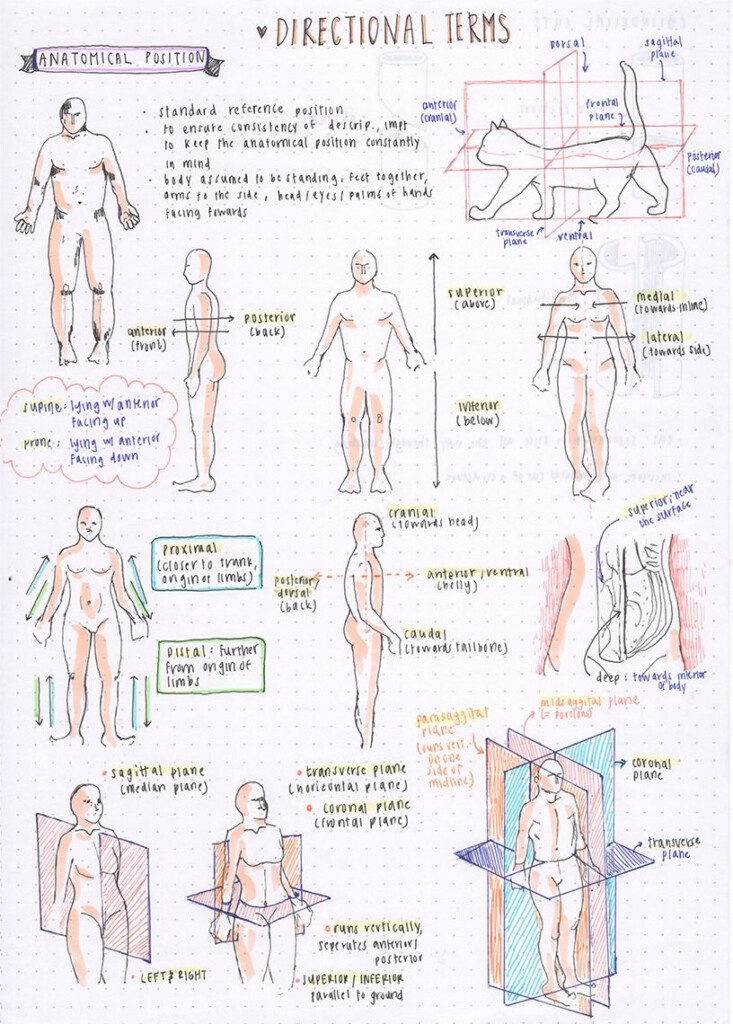 ♥ DIRECTIONAL TERMS
ANATOMICAL POSITION
• standard reference position
• to ensure consistency of descrip., impt
to keep the anatomical position constantly
in mind
• body assumed to be standing, feet together,
arms to the side, head/eyes/palms of hands
facing towards
dorsal
sagittal
plane
anterior
(cranial)
frontal
plane
posterior
(caudal)
transverse
plane
ventral
anterior
(front)
posterior
(back)
superior
(above)
inferior
(below)
medial
(towards inline)
lateral
(towards side)
supine: lying w/ anterior
facing up
prone: lying w/ anterior
facing down
Proximal
(closer to trunk,
origin of limbs)
Distal: further
from origin of
limbs
cranial
(towards head)
posterior
dorsal
(back)
anterior/ventral
(belly)
caudal
(towards tailbone)
superior: near
the surface
deep: towards interior
of body
• sagittal plane
(median plane)
• LEFT & RIGHT
• transverse plane
(horizontal plane)
• coronal plane
(frontal plane)
• runs vertically,
seperates anterior/
posterior
• SUPERIOR/INFERIOR
parallel to ground
parasaggital
plane
(runs vert.
on one
side of
midline)
midsaggital plane
coronal
plane
transverse
plane